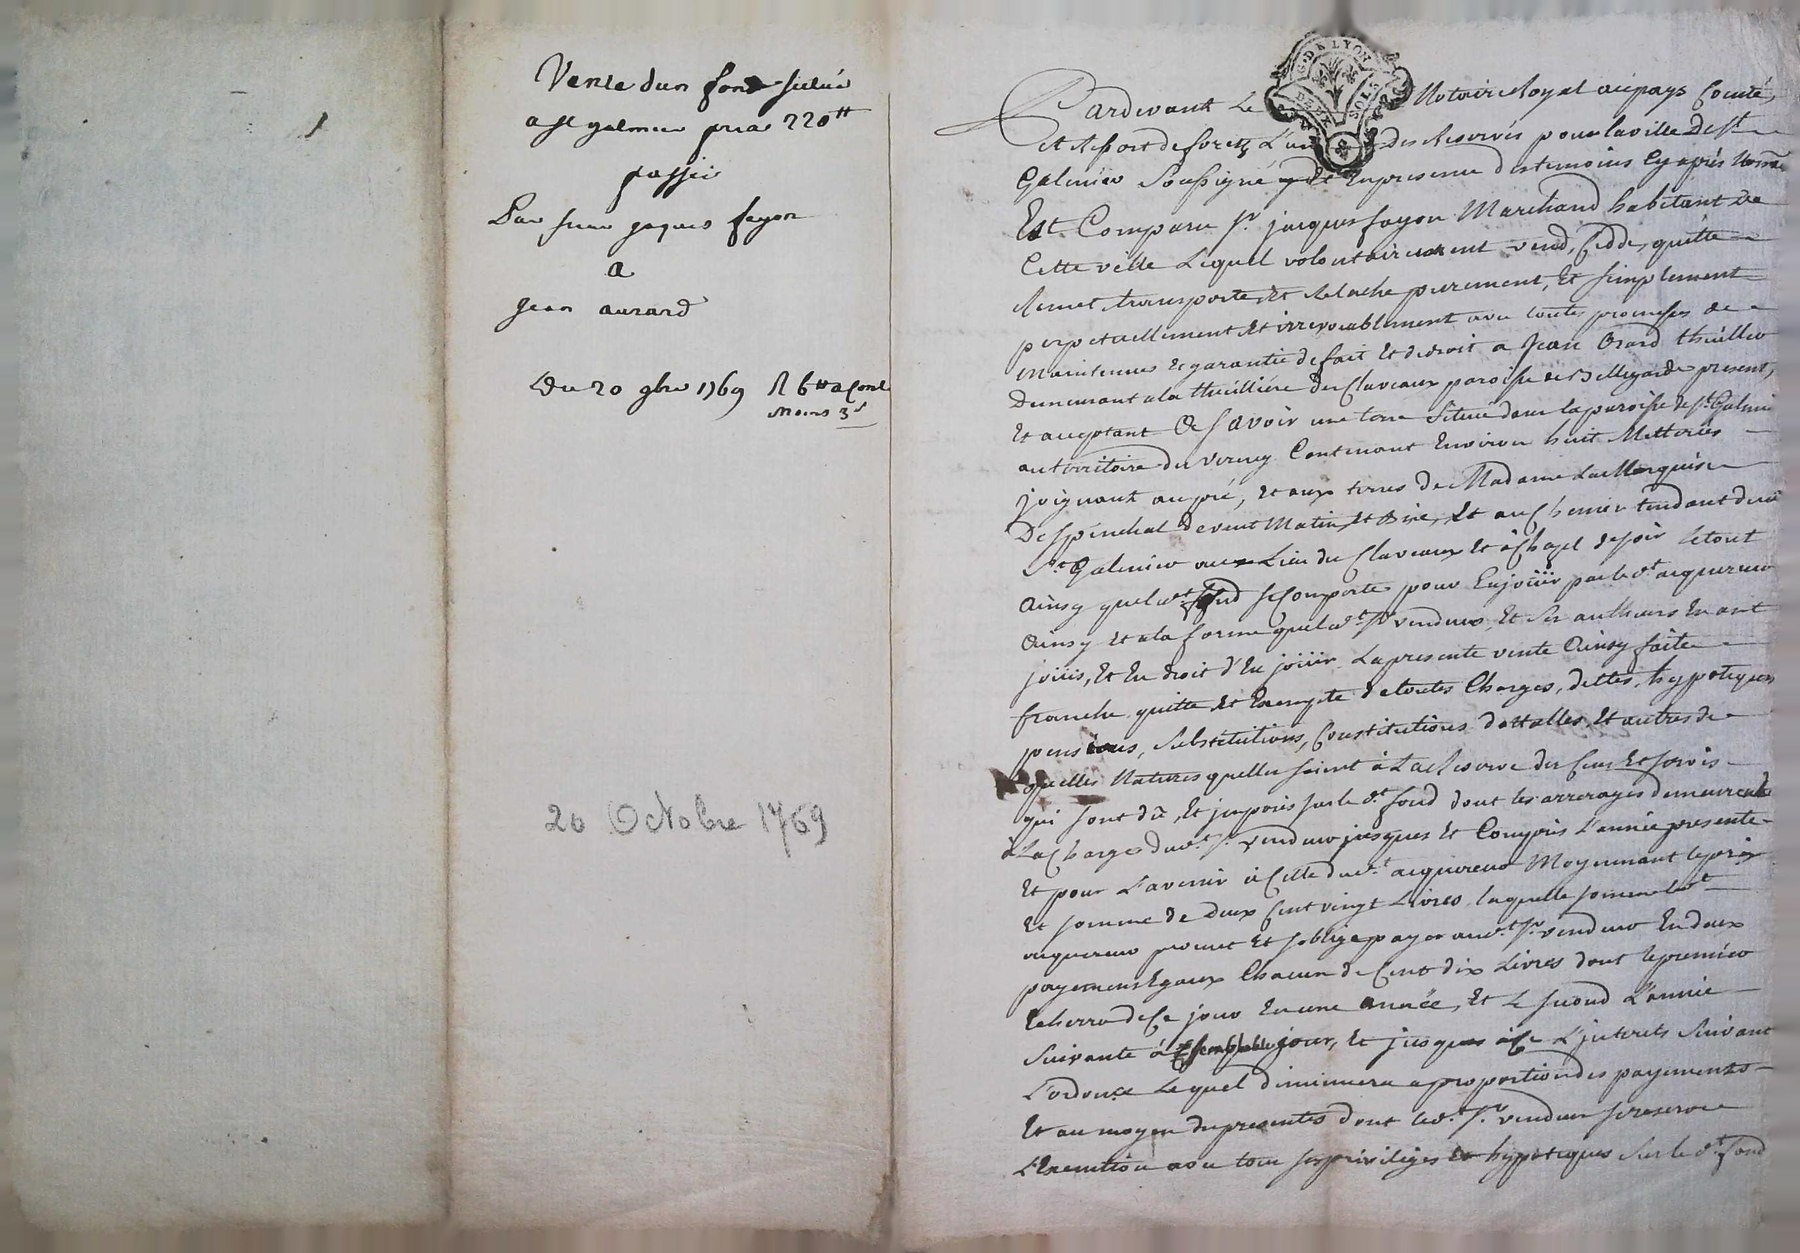 Vente dun fond situé
a st galmier prix 220 tt
passée
Par sieur jaques fayon
a
jean aurard
Du 20 8bre 1769 R 6 tt a Cont
moins 3 s
20 Octobre 1769
G. DE LYON
DEUX SOLS
Pardevant Le Notaire Royal au pays Comté,
et Ressort de forez L'un des Reservés pour la ville de St
Galmier Soussigné et En presence des temoins Cy après Nommés
Est Comparu Sr. jacques fayon Marchand habitant de
Cette ville Lequel volontairement vend, Cedde, quitte
Remet, transporte, et Relache purement, Et simplement
perpetuellement et irrevocablement avec toutes promesses de
maintenue et garantie de fait Et de droit a Jean Orard thuillier
Demeurant a la thuillière des Claveaux paroisse de Bellegarde present,
Et acceptant Asavoir une terre Située dans la paroisse de St. Galmier
au territoire du verney Contenant Environ huit Metterées
joignant au pré, et aux terres de Madame La Marquise
Despinchal de vent Matin, et Bize, Et au Chemin tendant dud.
St. Galmier au Lieu des Claveaux et à Chazel de soir Le tout
Ainsy que led.t fond se Comporte pour En joüir par led.t acquereur
Ainsy et a la forme que led.t Sr vendeur, Et Ses autheurs En ont
joüis, Et En droit d'En joüir. La presente vente Ainsy faite
franche quitte et Exempte de toutes Charges, dettes, hypoteques
pensions, Substitutions, Constitutions dottalles Et autres de
quelles Natures quelles soient à La Reserve des Cens Et servis
qui sont dû, Et imposés sur led.t fond dont les arrerages demeurent
à La Charge dud.t Sr. vendeur jusques Et Compris L'année presente
Et pour L'avenir à Celle dud.t acquereur Moyennant le prix
Et somme de deux Cent vingt Livres, laquelle somme led.t
acquereur promet Et soblige payer aud.t Sr. vendeur En deux
payemens Egaux Chacun de Cent dix Livres dont le premier
Echerra de Ce jour En une année, Et Le second L'année
Suivante à semblable jour, Et jusques à Ce L'interets Suivant
L'ordonce Lequel diminuera a proportion des payements
Et au moyen des presentes dont led.t Sr. vendeur se reserve
L'Execution avec tous ses privileges Et hypoteques Sur led.t fond